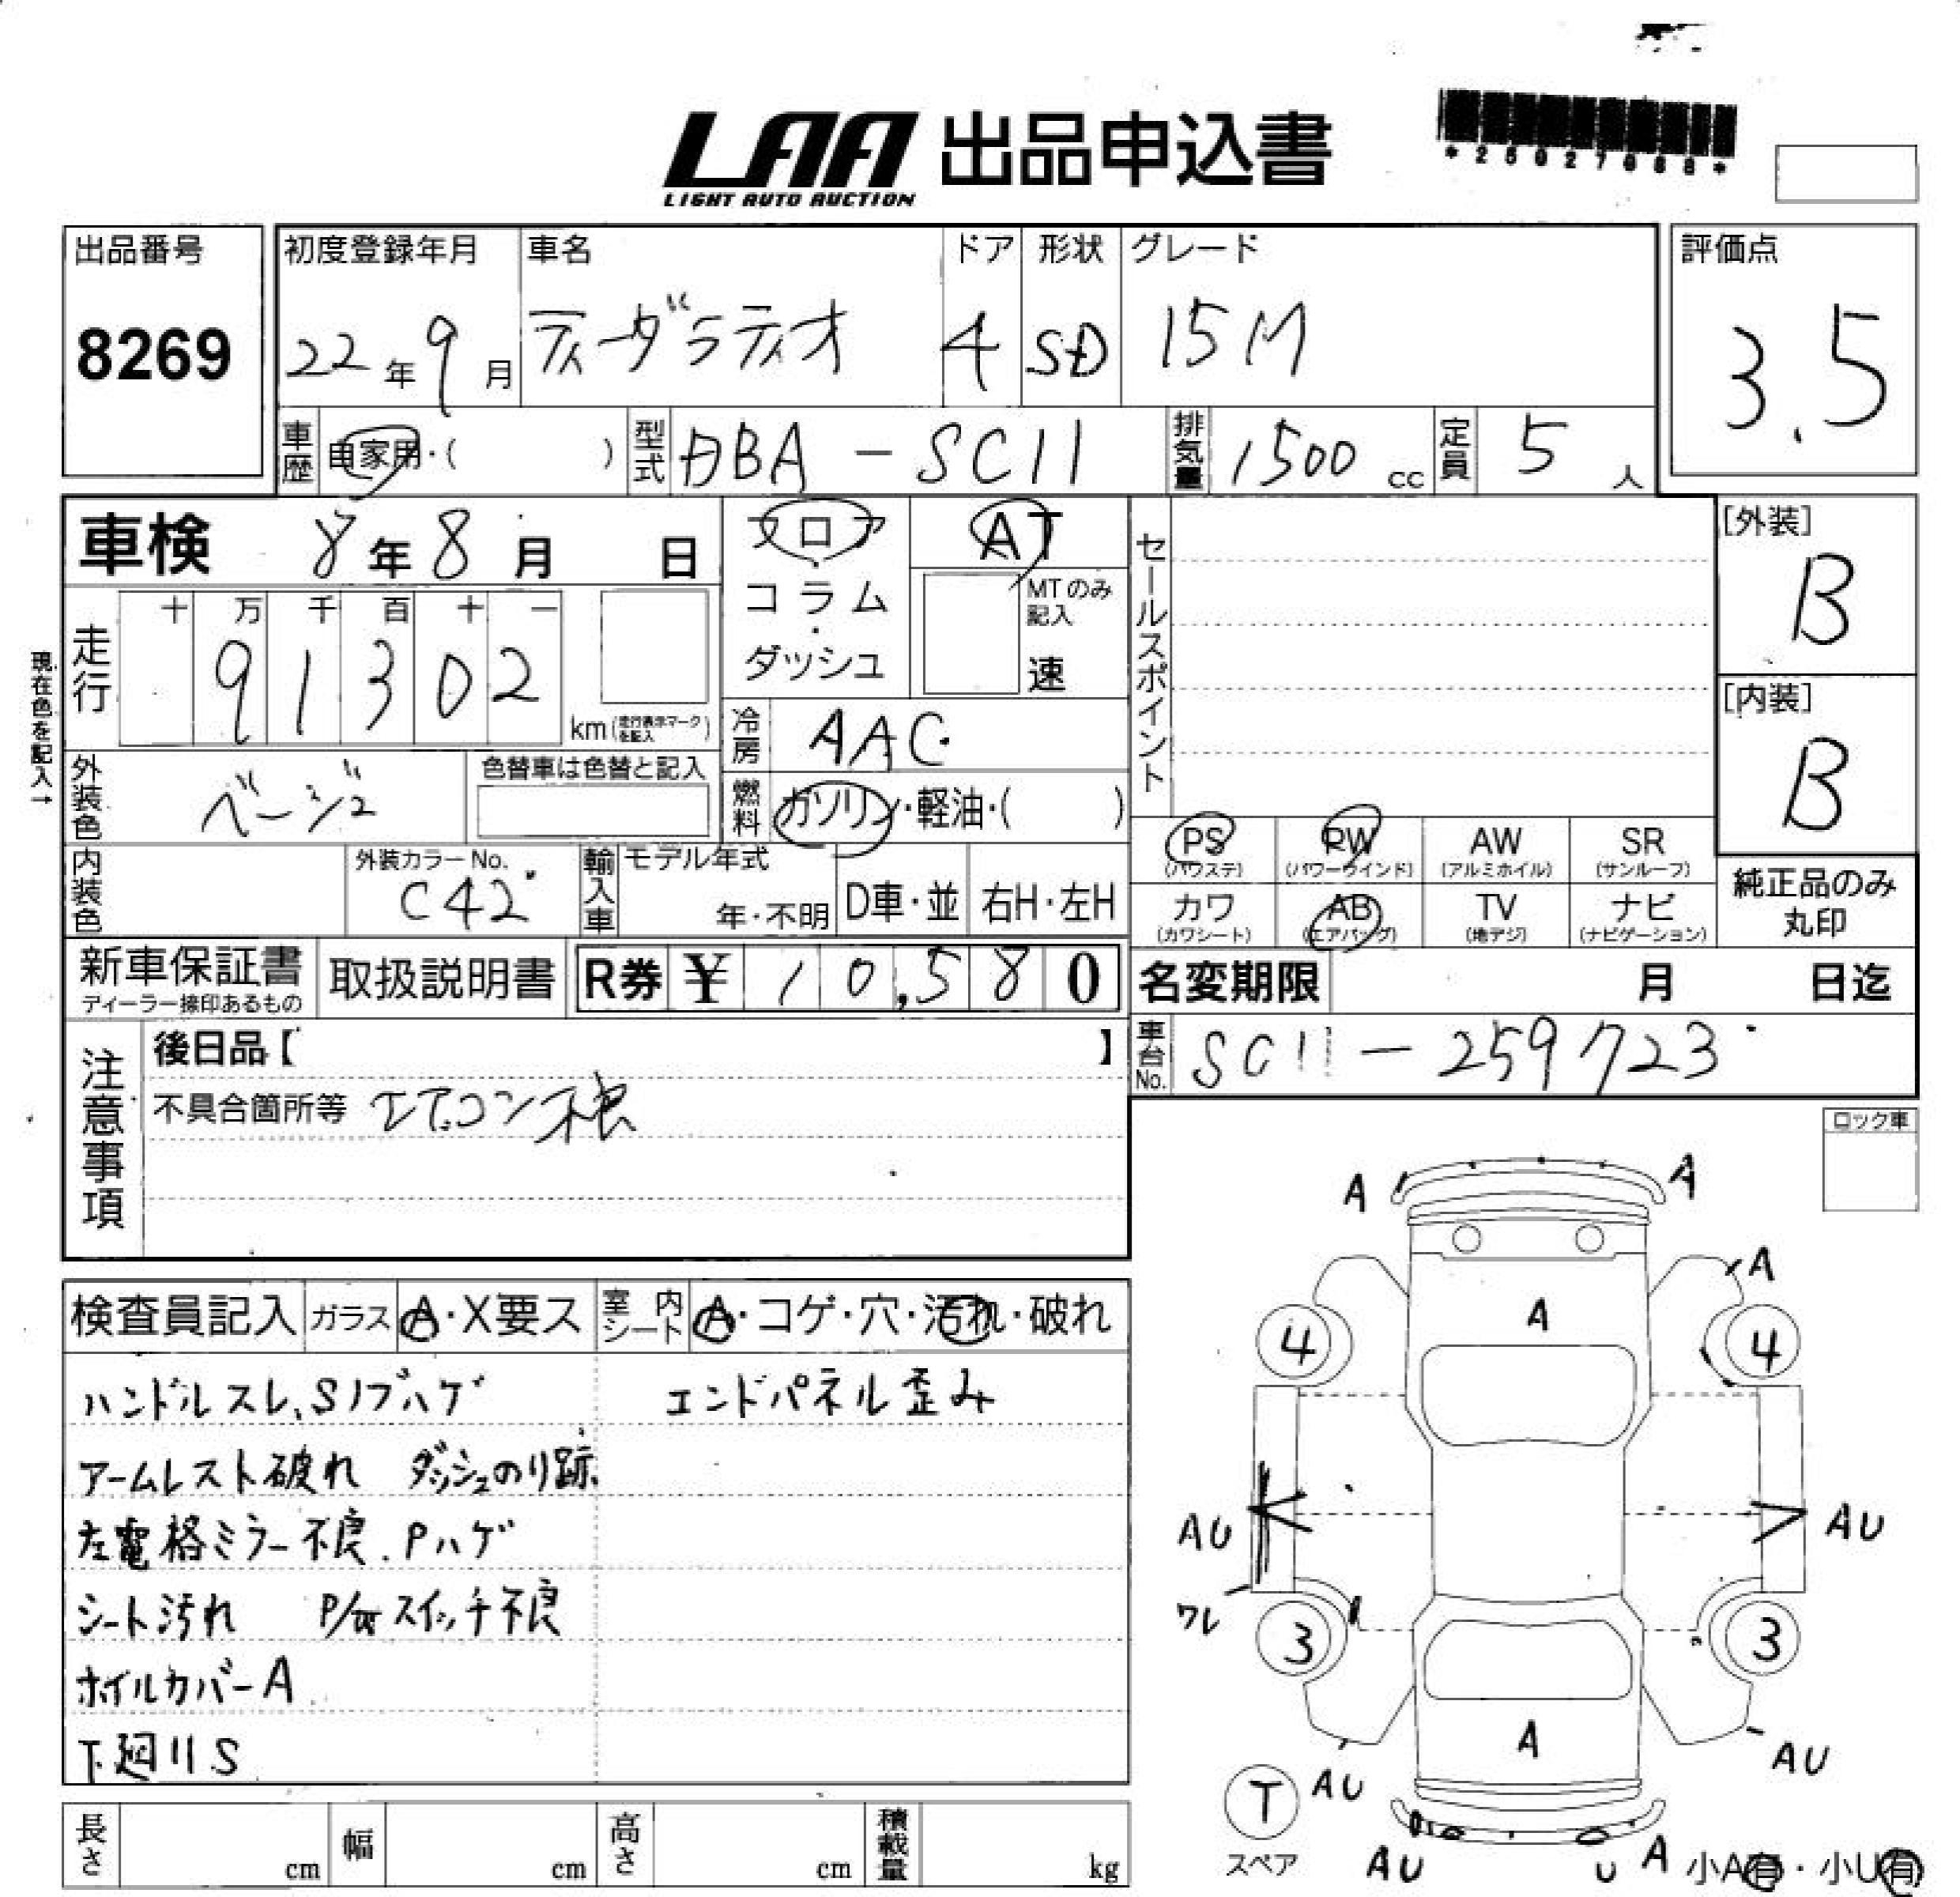 LAA 出品申込書
LIGHT AUTO AUCTION
出品番号
8269
初度登録年月
22年9月
車名
ティーダラティオ
ドア
4
形状
SD
グレード
15M
評価点
3.5
車歴 自家用・( )
型式 DBA-SC11
排気量 1500 cc
定員 5人
車検 8年8月 日
フロア・コラム・ダッシュ
AT
MTのみ記入
速
走行
十 万 千 百 十 一
91302
km(走行表示マークを記入)
現在色を記入→
冷房 AAC
燃料 ガソリン・軽油・( )
外装色 ベージュ
色替車は色替と記入
内装色
外装カラーNo.
C42
輸入車
モデル年式
年・不明
D車・並
右H・左H
セールスポイント
[外装]
B
[内装]
B
PS (パワステ)
PW (パワーウインド)
AW (アルミホイル)
SR (サンルーフ)
カワ (カワシート)
AB (エアバッグ)
TV (地デジ)
ナビ (ナビゲーション)
純正品のみ丸印
新車保証書
ディーラー捺印あるもの
取扱説明書
R券 ¥10,580
名変期限 月 日迄
車台No. SC11-259723
注意事項
後日品【 】
不具合箇所等 エアコン不良
ロック車
検査員記入
ガラス A・X要ス
室内シート A・コゲ・穴・汚れ・破れ
ハンドルスレ、Sノブハゲ
エンドパネル歪み
アームレスト破れ ダッシュのり跡
左電格ミラー不良.Pハゲ
シート汚れ P/W スイッチ不良
ホイルカバーA
下廻りS
A
A
A
A
4
4
AU
AU
ワレ
3
3
A
AU
AU
T
スペア
AU
U
A
小A有・小U有
長さ cm
幅 cm
高さ cm
積載量 kg